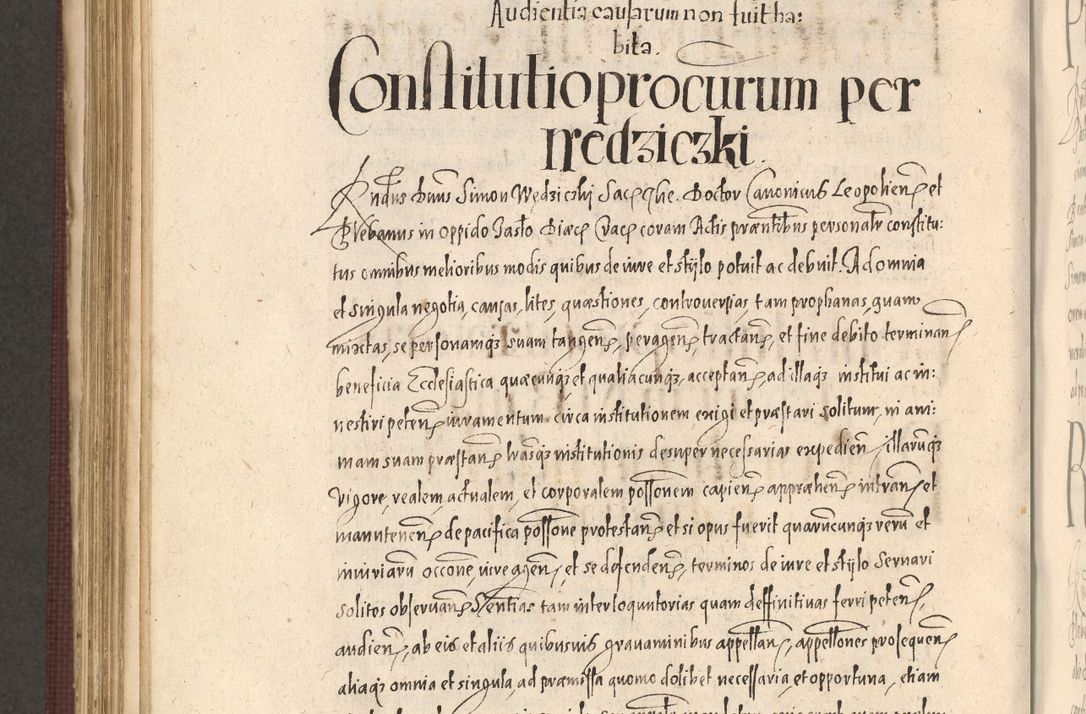 Audientia causarum non fuit ha:
bita.
Constitutio procurum per
Wedziczki.
Rndus Dnus Simon Wędziczki Sacrę The. Doctor Canonicus Leopolien et
Plebanus in oppido Jasło Diæc Crac coram Actis præntibus personalr constitu:
tus omnibus melioribus modis quibus de iure et stylo potuit ac debuit. Ad omnia
et singula negotia, causas, lites, quæstiones, controuersias, tam prophanas, quam
mixtas, se personamq suam tangen, peragen, tractan, et fine debito terminan
beneficia Ecclesiastica quæcunq et qualiacunq, acceptan, ad illaq institui ac in:
uestiri peten, iuramentum circa institutionem exigi et præstari solitum, in ani:
mam suam præstan, lrasq institutionis desuper necessarias expedien, illarumq
vigore, realem actualem, et corporalem possonem capien appræhen, intran, et
manutenen, de pacifica possone protestan, et si opus fuerit quarumcunq rerum et
iniuriaru occone, iure agen, et se defenden, terminos de iure et stylo seruari
solitos obseruan, Sententias tam interloquutorias quam deffinitiuas ferri peten,
audien, ab eis et aliis quibusuis grauaminibus appellan, appellones prosequen,
aliaq omnia et singula, ad præmissa quomodolibet necessaria et opportuna, etiam